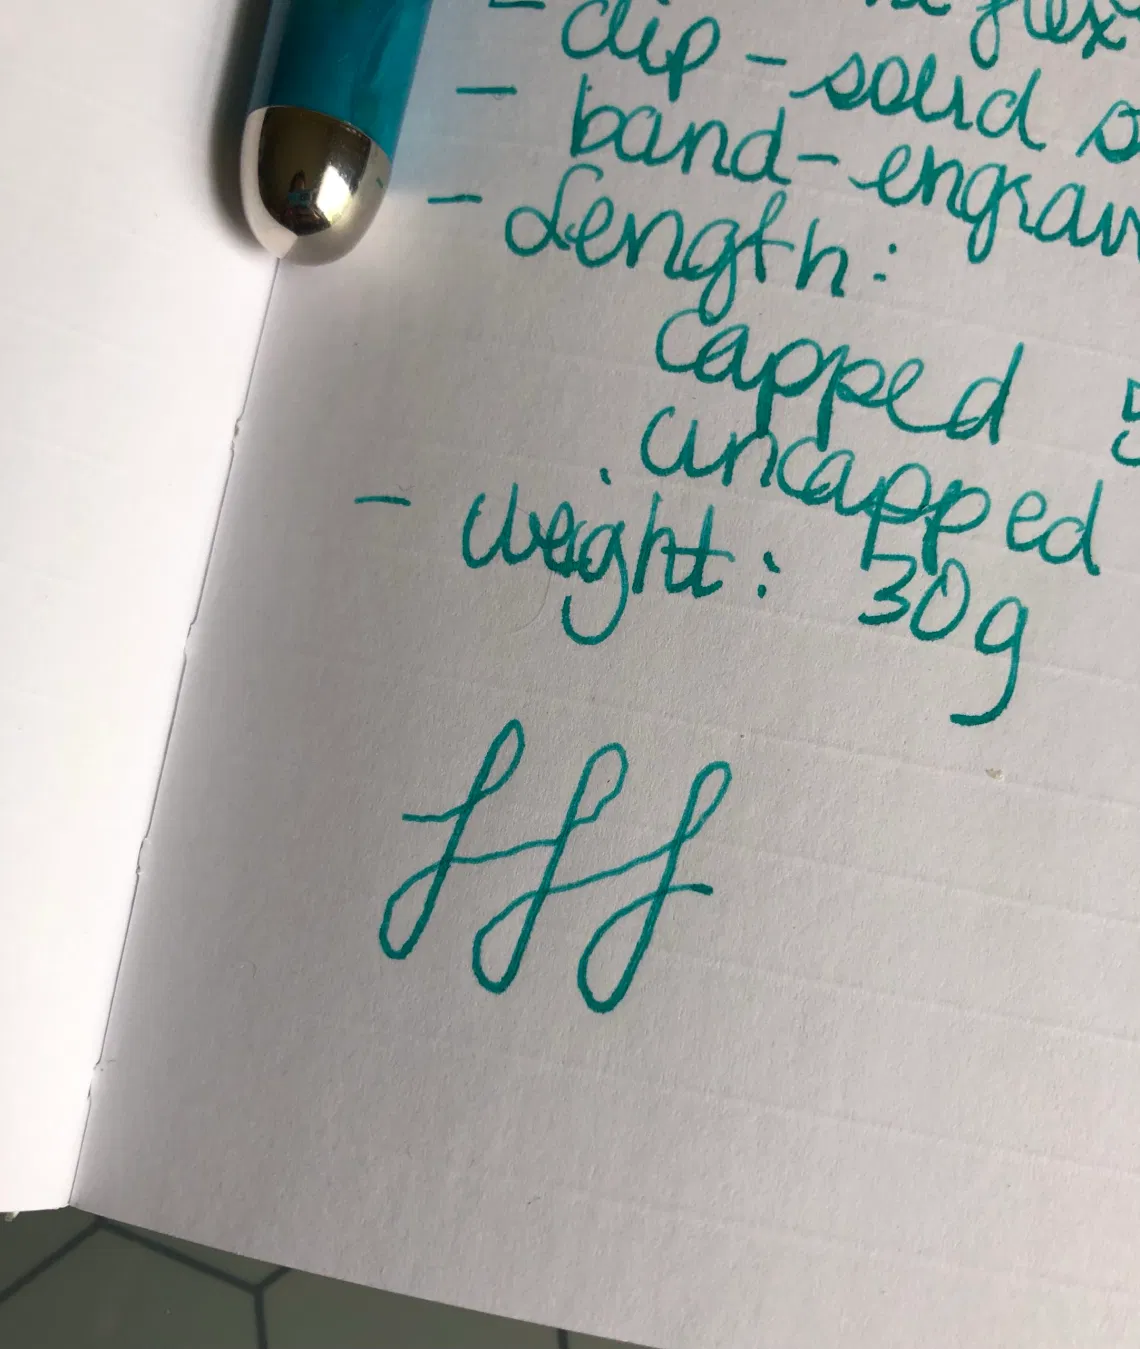 flex
- clip - solid
- band - engrav
- Length:
capped 5
uncapped
- weight: 30g
fff